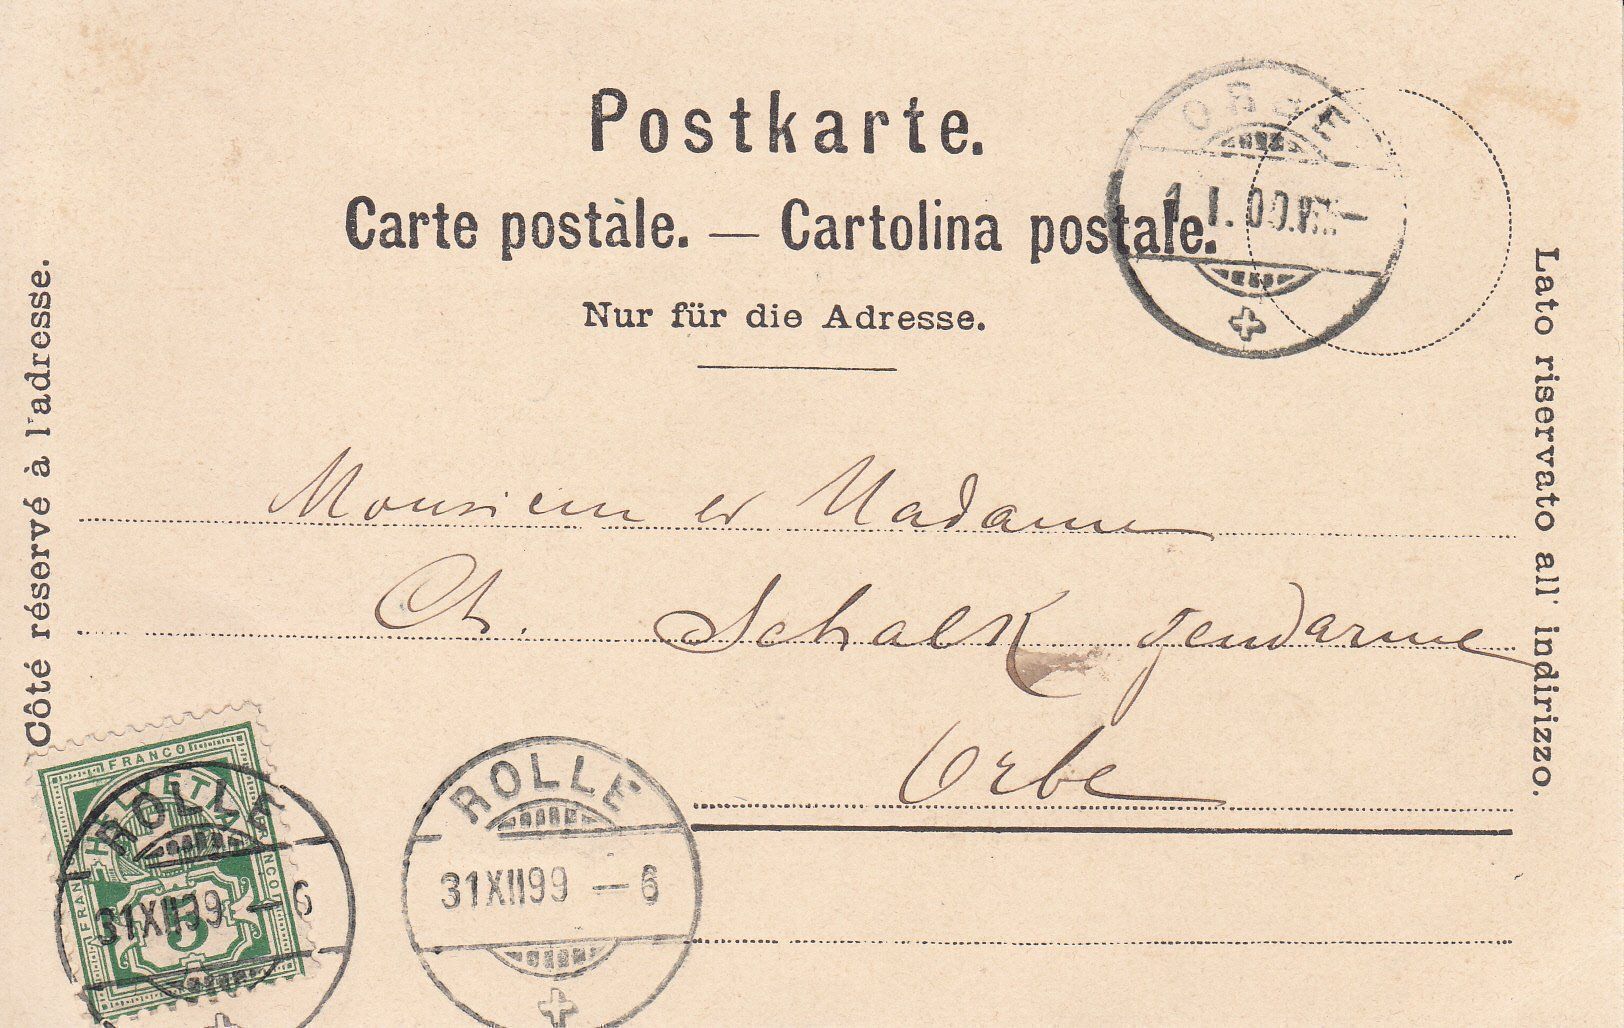 Postkarte.
Carte postale. — Cartolina postale.
Nur für die Adresse.
Côté réservé à l'adresse.
Lato riservato all' indirizzo.
ORBE
1. I. 00.VIII–
Monsieur et Madame
Ch. Schalk gendarme
Orbe
FRANCO
HELVETIA
FRANCO
FRANCO
5
ROLLE
31 XII 99 – 6
ROLLE
31 XII 99 – 6